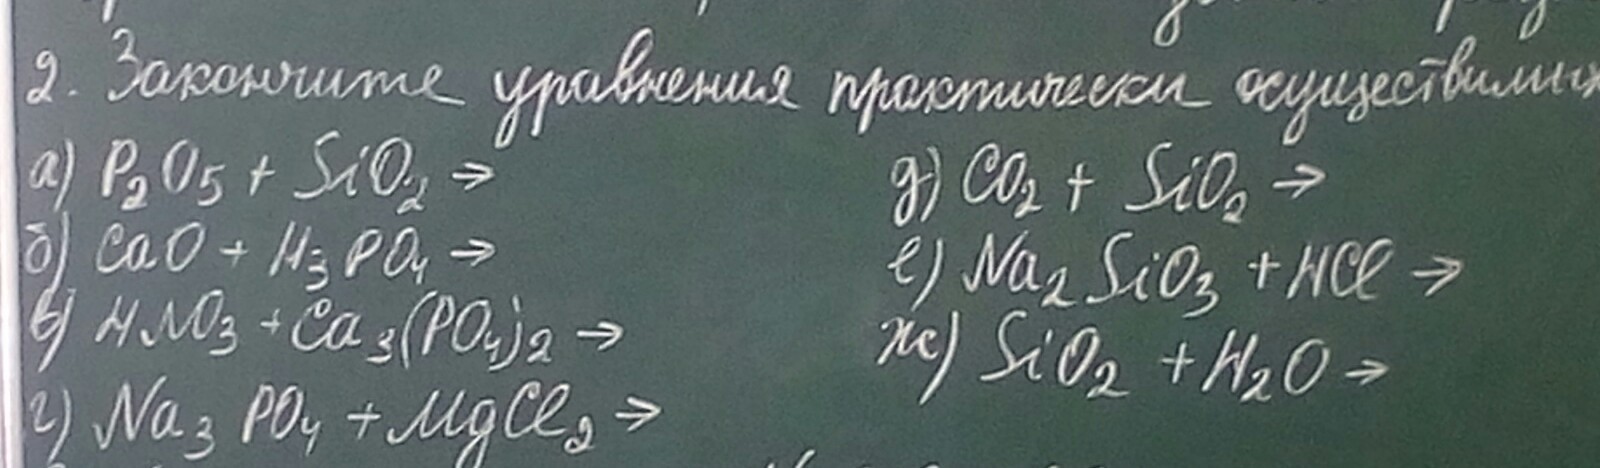 2. Закончите уравнения практически осуществимых
а) P₂O₅ + SiO₂ →
б) CaO + H₃PO₄ →
в) HNO₃ + Ca₃(PO₄)₂ →
г) Na₃PO₄ + MgCl₂ →
д) CO₂ + SiO₂ →
е) Na₂SiO₃ + HCl →
ж) SiO₂ + H₂O →